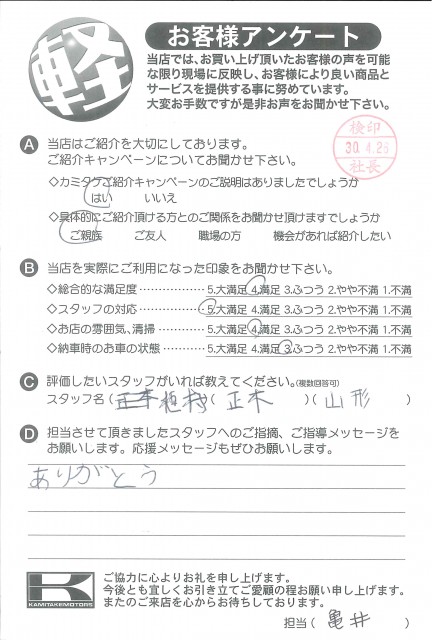 軽
お客様アンケート
当店では、お買い上げ頂いたお客様の声を可能
な限り現場に反映し、お客様により良い商品と
サービスを提供する事に努めています。
大変お手数ですが是非お声をお聞かせ下さい。
検印
30.4.26
社長
A 当店はご紹介を大切にしております。
ご紹介キャンペーンについてお聞かせ下さい。
◇カミタケご紹介キャンペーンのご説明はありましたでしょうか
はい いいえ
◇具体的にご紹介頂ける方とのご関係をお聞かせ頂けますでしょうか
ご親族 ご友人 職場の方 機会があれば紹介したい
B 当店を実際にご利用になった印象をお聞かせ下さい。
◇総合的な満足度……………5.大満足 4.満足 3.ふつう 2.やや不満 1.不満
◇スタッフの対応……………5.大満足 4.満足 3.ふつう 2.やや不満 1.不満
◇お店の雰囲気、清掃………5.大満足 4.満足 3.ふつう 2.やや不満 1.不満
◇納車時のお車の状態………5.大満足 4.満足 3.ふつう 2.やや不満 1.不満
C 評価したいスタッフがいれば教えてください。(複数回答可)
スタッフ名( 植村 )( 正木 )( 山形 )
D 担当させて頂きましたスタッフへのご指摘、ご指導メッセージを
お願いします。応援メッセージもぜひお願いします。
ありがとう
K
KAMITAKEMOTORS
ご協力に心よりお礼を申し上げます。
今後とも宜しくお引き立てご愛顧の程お願い申し上げます。
またのご来店を心からお待ちしております。
担当( 亀井 )